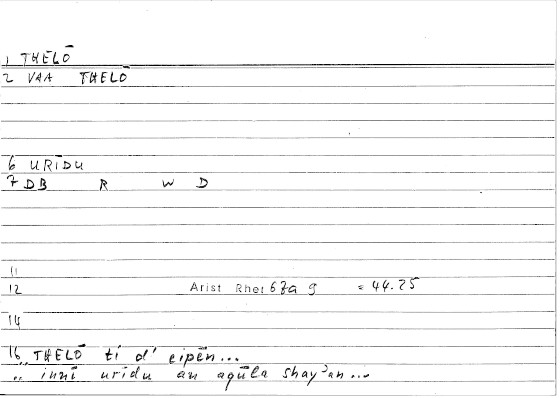 1 THELŌ
2 VAA THELŌ
6 URĪDU
7 DB R W D
11
12 Arist Rhet 67a 9 = 44.25
14
16 „THELŌ tí d' eipēn...
„ innī urīdu an aqūla shay'an...